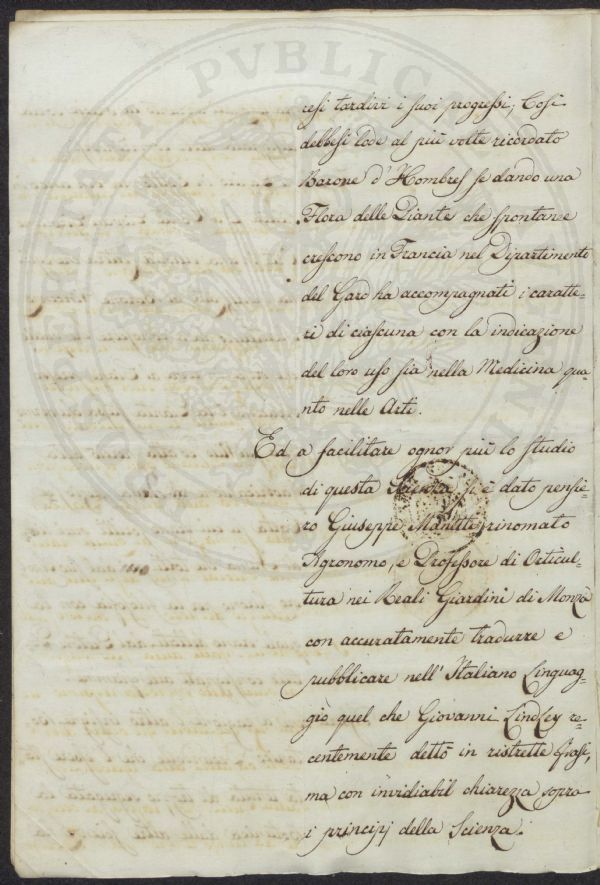 resi tardivi i suoi progressi; Così
debbesi lode al più volte ricordato
Barone d'Hombres se dando una
Flora delle Piante che spontanee
crescono in Francia nel Dipartimento
del Gard ha accompagnati i caratte-
ri di ciascuna con la indicazione
del loro uso sia nella Medicina qua-
nto nelle Arti.
Ed a facilitare ognor più lo studio
di questa Scienza si è dato pensie-
ro Giuseppe Manetti rinomato
Agronomo, e Professore di Orticul-
tura nei Reali Giardini di Monza
con accuratamente tradurre e
pubblicare nell'Italiano Linguag-
gio quel che Giovanni Lindley re-
centemente dettò in ristrette frasi,
ma con invidiabil chiarezza sopra
i principj della Scienza.